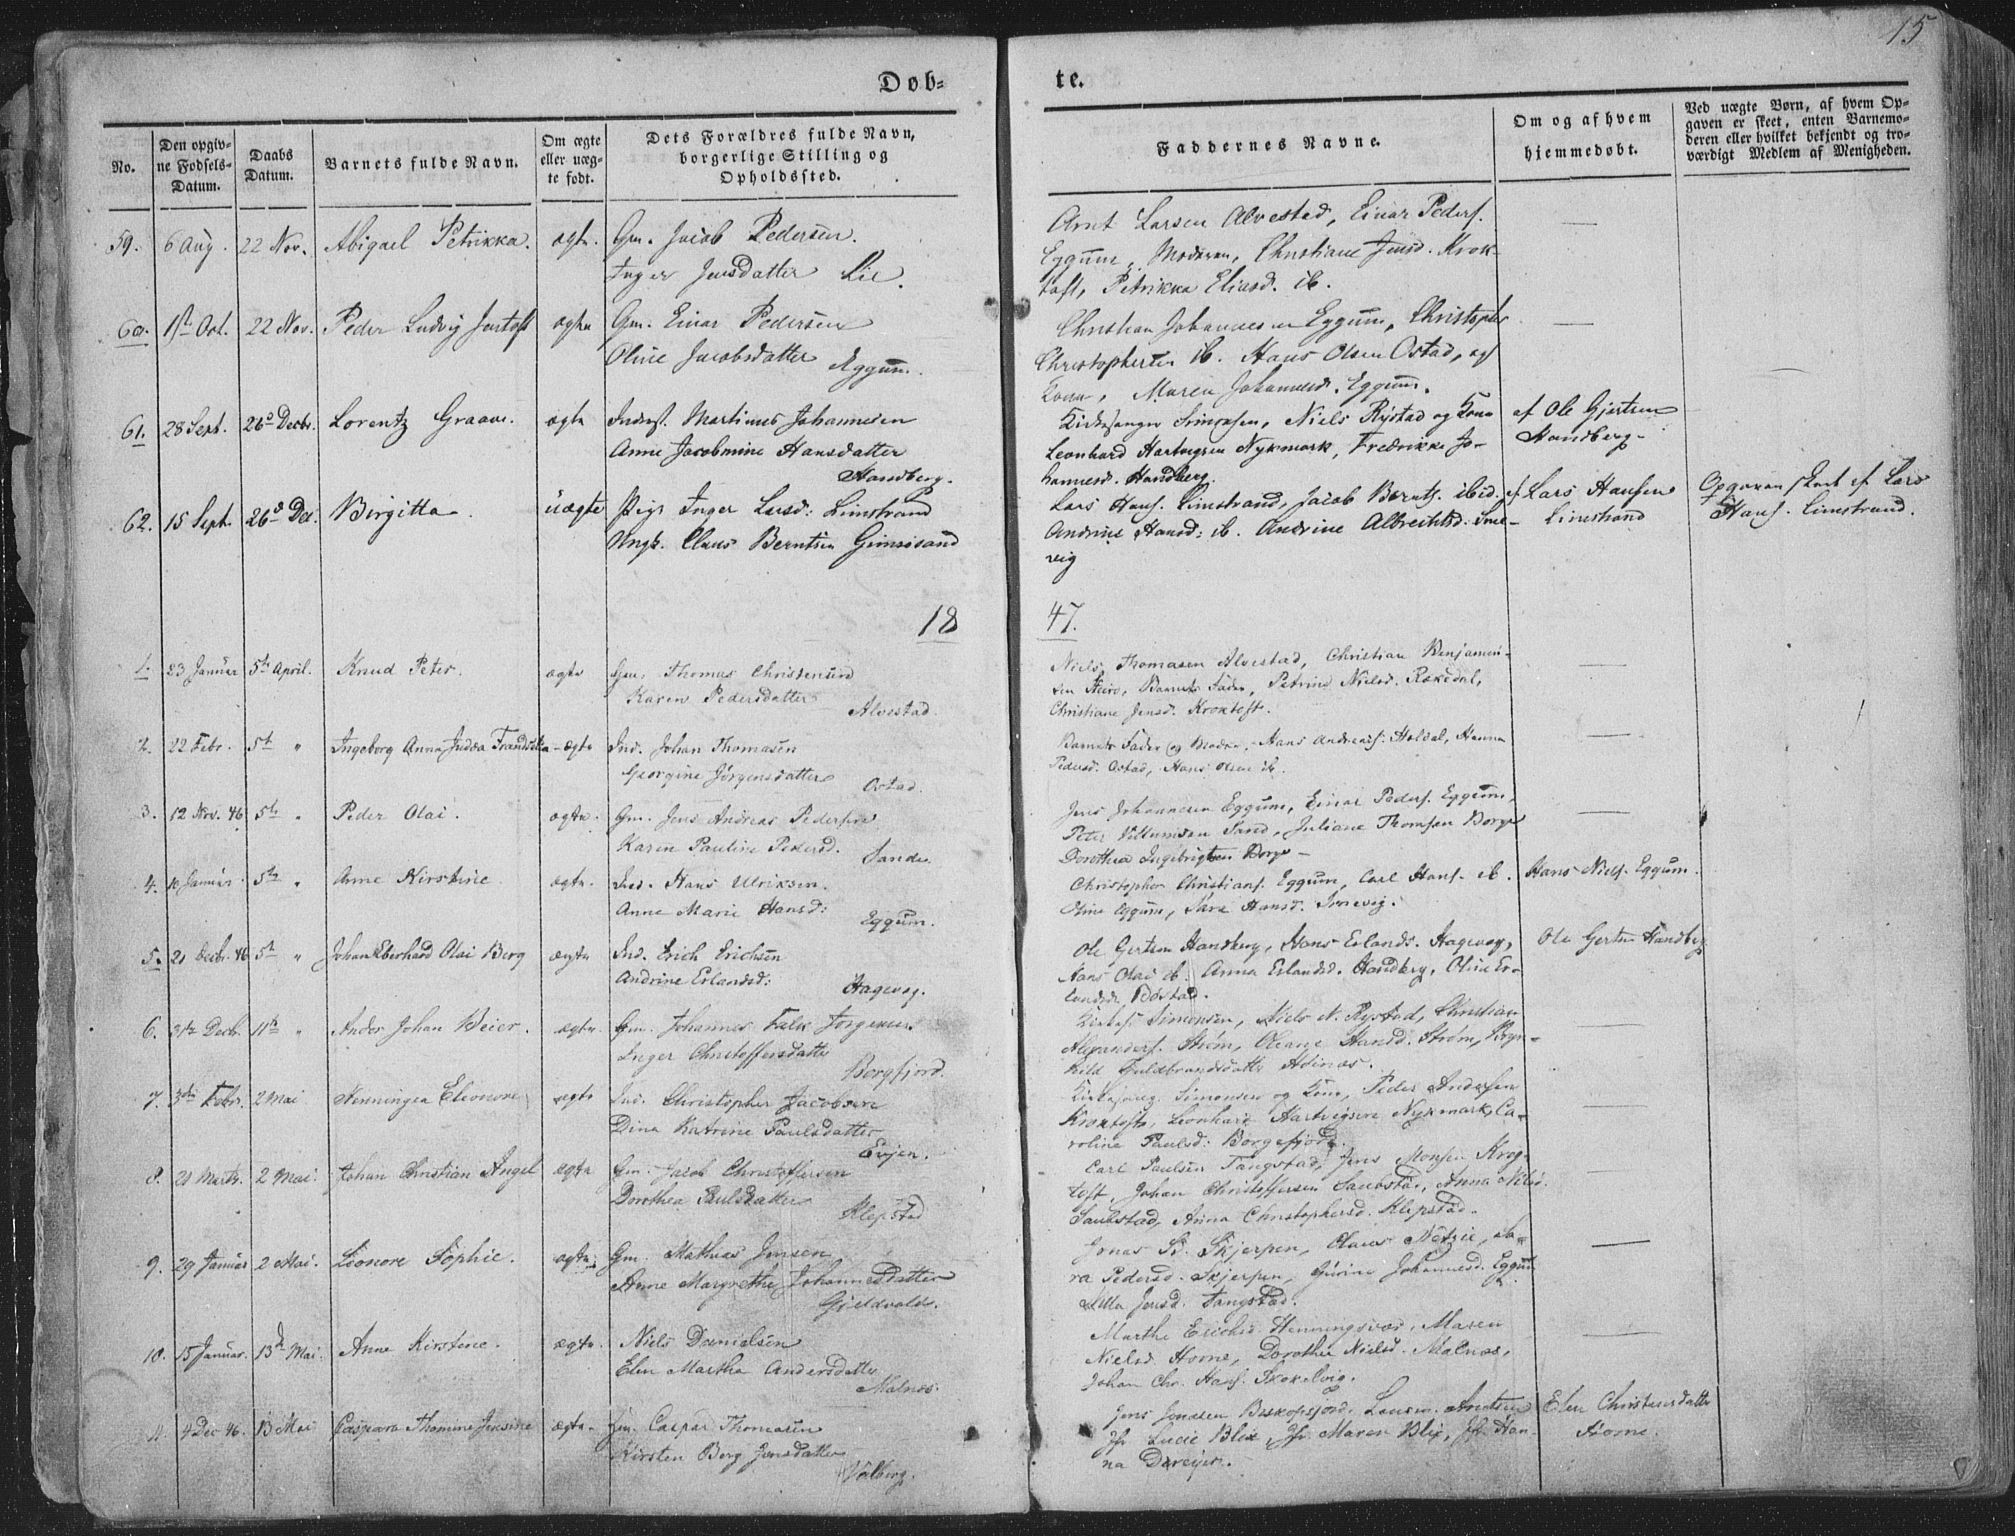 15
Døb=
te.
No.
Den opgiv-
ne Fødsels-
Datum.
Daabs
Datum.
Barnets fulde Navn.
Om ægte
eller uæg-
te født.
Dets Forældres fulde Navn,
borgerlige Stilling og
Opholdssted.
Faddernes Navne.
Om og af hvem
hjemmedøbt.
Ved uægte Børn, af hvem Op-
gaven er skeet, enten Barnemo-
deren eller hvilket bekjendt og tro-
værdigt Medlem af Menigheden.
59. 6 Aug. 22 Nov. Abigael Petrikka. ægte. Gm. Jacob Pedersen.
Inger Jensdatter Lie.
Arnt Larsen Alvestad, Einar Peders.
Eggum, Moderen, Christiane Jensd. Krok-
toft, Petrikka Eliasd. ib.
60. 1ste Oct. 22 Nov. Peder Ludvig ægte Gm. Einar Pedersen
Oline Jacobsdatter Eggum.
Christian Johannesen Eggum, Christopher
Christophersen ib. Hans Olsen Ostad, og
Kona, Maren Johannesd. Eggum.
61. 28 Sept. 26de Decbr. Lorentz Graave. ægte Inderst. Martinus Johannesen
Anne Jacobmine Hansdatter
Handberg.
Kirkesanger Simonsen, Niels Rystad og Kone
Leonhard Hartvigsen Nykmark, Fredrikke Jo-
hannesd. Handberg.
af Ole Gjertsen
Handberg.
62. 15 Sept. 26de Dec. Birgitta uægte Pige Inger Larsd: Limstrand
Ungk. Claus Berntsen Gimsøsand
Lars Hans. Limstrand, Jacob Bernts. ibid.
Andrine Hansd: ib. Andrine Albrechtsd. Sme-
vig
af Lars Hansen
Limstrand
Opgaven skeet af Lars
Hans. Limstrand.
18
47.
1. 23 Januar 5te April. Knud Peter. ægte Gm. Thomas Christensen
Karen Pedersdatter
Alvestad.
Niels Thomasen Alvestad, Christian Benjamin-
sen Barnets Fader, Petrine Nielsd.
Christiane Jensd. Kroktoft.
2. 22 Febr. 5te " Ingeborg Anna Judea Frandsiska ægte Ind. Johan Thomasen
Georgine Jørgensdatter
Ostad.
Barnets Fader og Moder, Hans Andreas. Holdal, Hanna
Pedersd. Ostad, Hans Olsen ib.
3. 12 Nov. 46 5te " Peder Olai. ægte. Gm. Jens Andreas Pedersen
Karen Pauline Pedersd.
Sande.
Jens Johannesen Eggum, Einar Peders. Eggum,
Peter Villumsen Sand, Juliane Thomsen Borge
Dorothea Ingebrigtsen Borge
4. 10 Januar 5te " Anne Kirstine ægte. Ind. Hans Ulriksen.
Anne Marie Hansd:
Eggum.
Christopher Christians. Eggum, Carl Hans. ib.
Oline Eggum, Sara Hansd. Smevig.
Hans Niels. Eggum.
5. 21 Decbr. 46 5te " Johan Eberhard Olai Berg ægte Ind. Erich Erichsen
Andrine Erlandsd:
Hagevog.
Ole Gertsen Handberg, Hans Erlands. Hagevog,
Hans Olai ib. Anna Erlandsd. Handberg, Oline Er-
landsd. Bøstad.
Ole Gertsen Handberg
6. 31te Decbr. 11te " Ander Johan Meier. ægte Gm. Johannes Falk Jørgensen
Inger Christoffersdatter
Borgfjord.
Kirkes. Simonsen, Niels N. Rystad, Christian
Alexanders. Strøm, Oleane Hansd. Strøm, Ragn-
hild Guldbrandsdatter
7. 3die Febr. 2 Mai Nenningea Eleonore ægte Ind. Christopher Jacobsen
Dina Katrine Paulsdatter
Evjen.
Kirkesang. Simonsen og Kone, Peder Andersen
Kroktoft, Leonhard Hartvigsen Nykmark, Ca-
roline Paulsd: Borgefjord.
8. 21 Marts. 2 Mai. Johan Christian Angel ægte Gm. Jacob Christoffersen
Dorothea Paulsdatter
Klepstad
Carl Paulsen Tangstad, Jens Monsen Krog-
toft, Johan Christoffersen Saubstad, Anna Nilsd.
Saubstad, Anna Christophersd. Klepstad.
9. 29 Januar 2 Mai. Leonore Sophie. ægte. Gm. Mathias Jensen
Anne Margrethe Johannesdatter
Jonas B. Skjerpen, Claus Netzie, Sa-
ra Pedersd. Skjerpen, Gurine Johannesd. Eggum
Jensd. Tangstad.
10. 15 Januar. 13de Mai. Anne Kirstine. ægte. Niels Danielsen
Elen Martha Andersdatter
Malnes.
Marthe Erichsd. Henningsvær, Maren
Nielsd. Horne, Dorothea Nielsd. Malnes,
Johan Chr. Hans. Skokelvig.
11. 4 Dec 46. 13 Mai Caspara Thomine Jensine ægte. Gm. Caspar Thomasen
Kirsten Berg Jensdatter
Valberg.
Jens Jonasen Biskopsjord. Arntsen
Jfr Lucie Blix, Jfr Maren Blix, Jfr Han-
na Dreyer.
Elen Christensdatter
Horne.